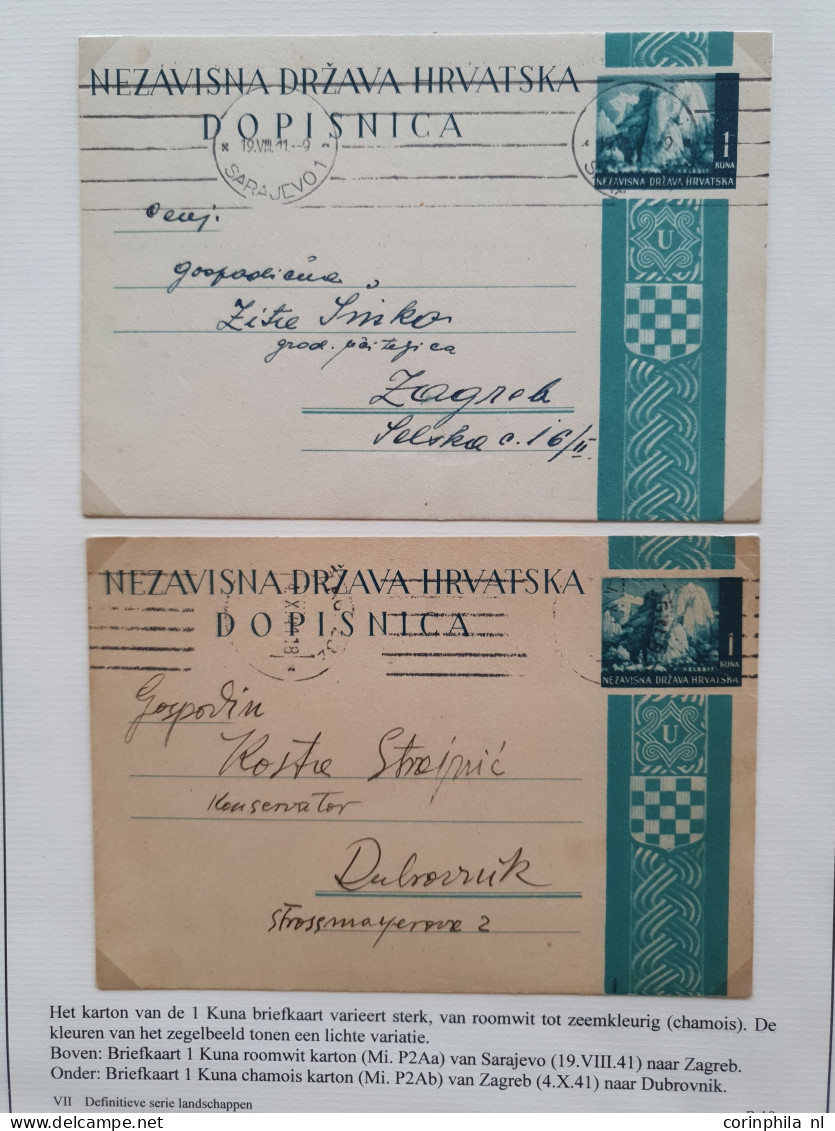 NEZAVISNA DRŽAVA HRVATSKA
DOPISNICA
* 19.VIII.41.--9 *
SARAJEVO 1
1
KUNA
VELEBIT
NEZAVISNA DRŽAVA HRVATSKA
Cenj.
gospodična
Zita
grad. učiteljica
Zagreb
Selska c. 16/II.
U
NEZAVISNA DRŽAVA HRVATSKA
DOPISNICA
1
KUNA
VELEBIT
NEZAVISNA DRŽAVA HRVATSKA
Gospodin
Kosta Strajnić
Konservator
Dubrovnik
Strossmayerova 2
U
Het karton van de 1 Kuna briefkaart varieert sterk, van roomwit tot zeemkleurig (chamois). De
kleuren van het zegelbeeld tonen een lichte variatie.
Boven: Briefkaart 1 Kuna roomwit karton (Mi. P2Aa) van Sarajevo (19.VIII.41) naar Zagreb.
Onder: Briefkaart 1 Kuna chamois karton (Mi. P2Ab) van Zagreb (4.X.41) naar Dubrovnik.
VII Definitieve serie landschappen
www.delcampe.net
corinphila nl